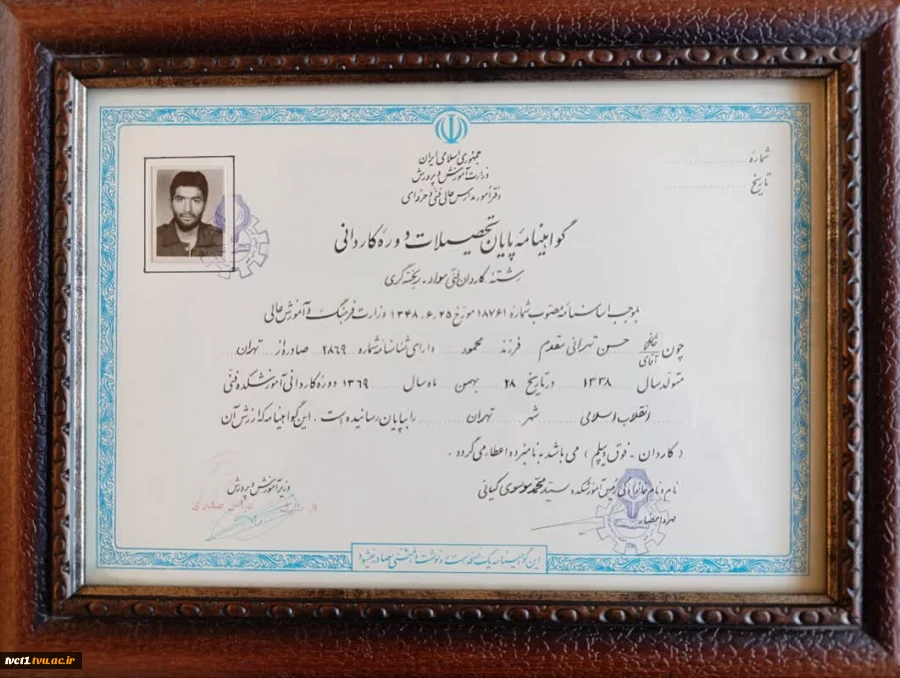 شمارهٔ
تاریخ
جمهوری اسلامی ایران
وزارت آموزش و پرورش
دفتر امور مدارس عالی فنی و حرفه‌ای
گواهینامهٔ پایان تحصیلات دورهٔ کاردانی
رشتهٔ کاردان فنی مواد - ریخته‌گری
بموجب اساسنامه مصوب شمارهٔ ۱۸۷۶۱ مورخ ۱۳۴۸.۶.۲۵ وزارت فرهنگ و آموزش عالی
چون خانم آقای حسن تهرانی مقدم فرزند محمود دارای شناسنامه شماره ۲۸۶۹ صادره از تهران
متولد سال ۱۳۳۸ در تاریخ ۲۸ بهمن ماه سال ۱۳۶۹ دوره کاردانی آموزشکده فنی
انقلاب اسلامی شهر تهران را بپایان رسانیده است . این گواهینامه که ارزش آن
( کاردان - فوق دیپلم ) می باشد به نامبرده اعطا می گردد .
نام و نام خانوادگی رئیس آموزشکده سید محمد موسوی کیانی
مهر و امضاء
وزیر آموزش و پرورش
از طرف عباس صدری
این گواهینامه یک نسخه است و رونوشت یا المثنی صادر نمیشود
tvct1.tvu.ac.ir